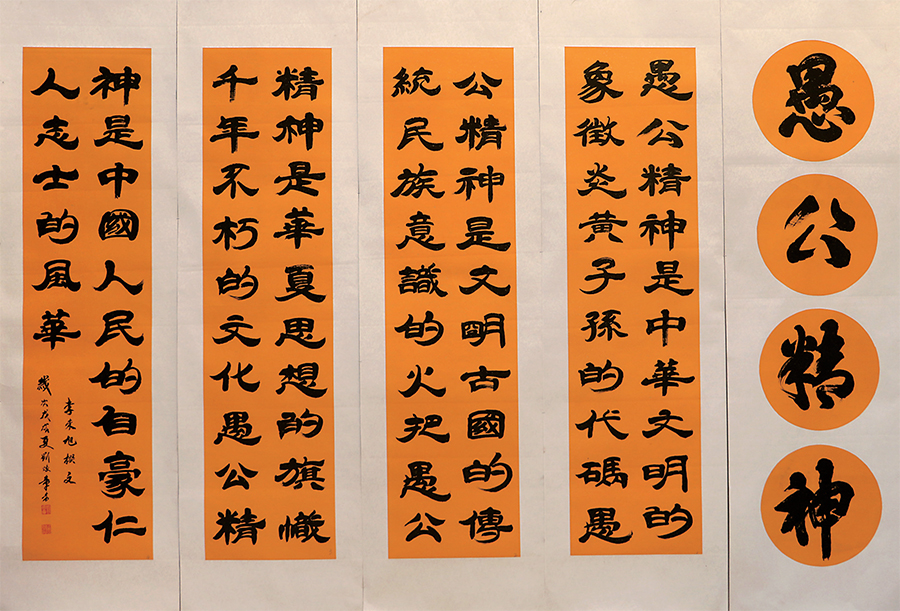 愚公精神
愚公精神是中華文明的
象徵炎黃子孫的代碼愚
公精神是文明古國的傳
統民族意識的火把愚公
精神是華夏思想的旗幟
千年不朽的文化愚公精
神是中國人民的自豪仁
人志士的風華
撰文
歲次戊戌夏